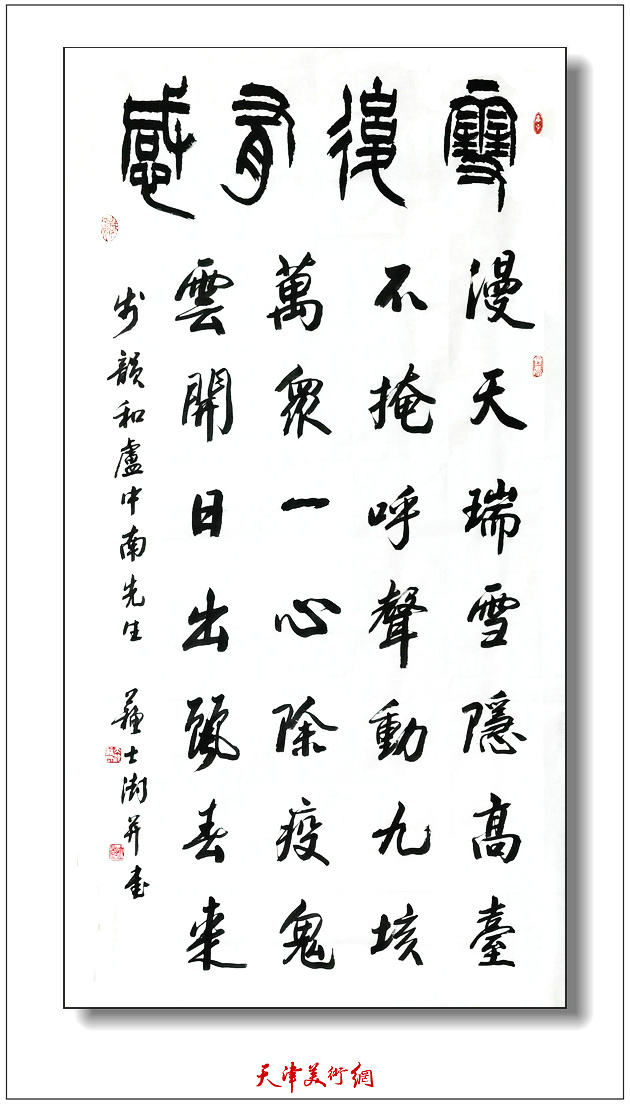 雪後有感
漫天瑞雪隱高臺
不掩呼聲動九垓
萬衆一心除疫鬼
雲開日出春来
步韻和盧中南先生 蘇士澍并書
天津美術網